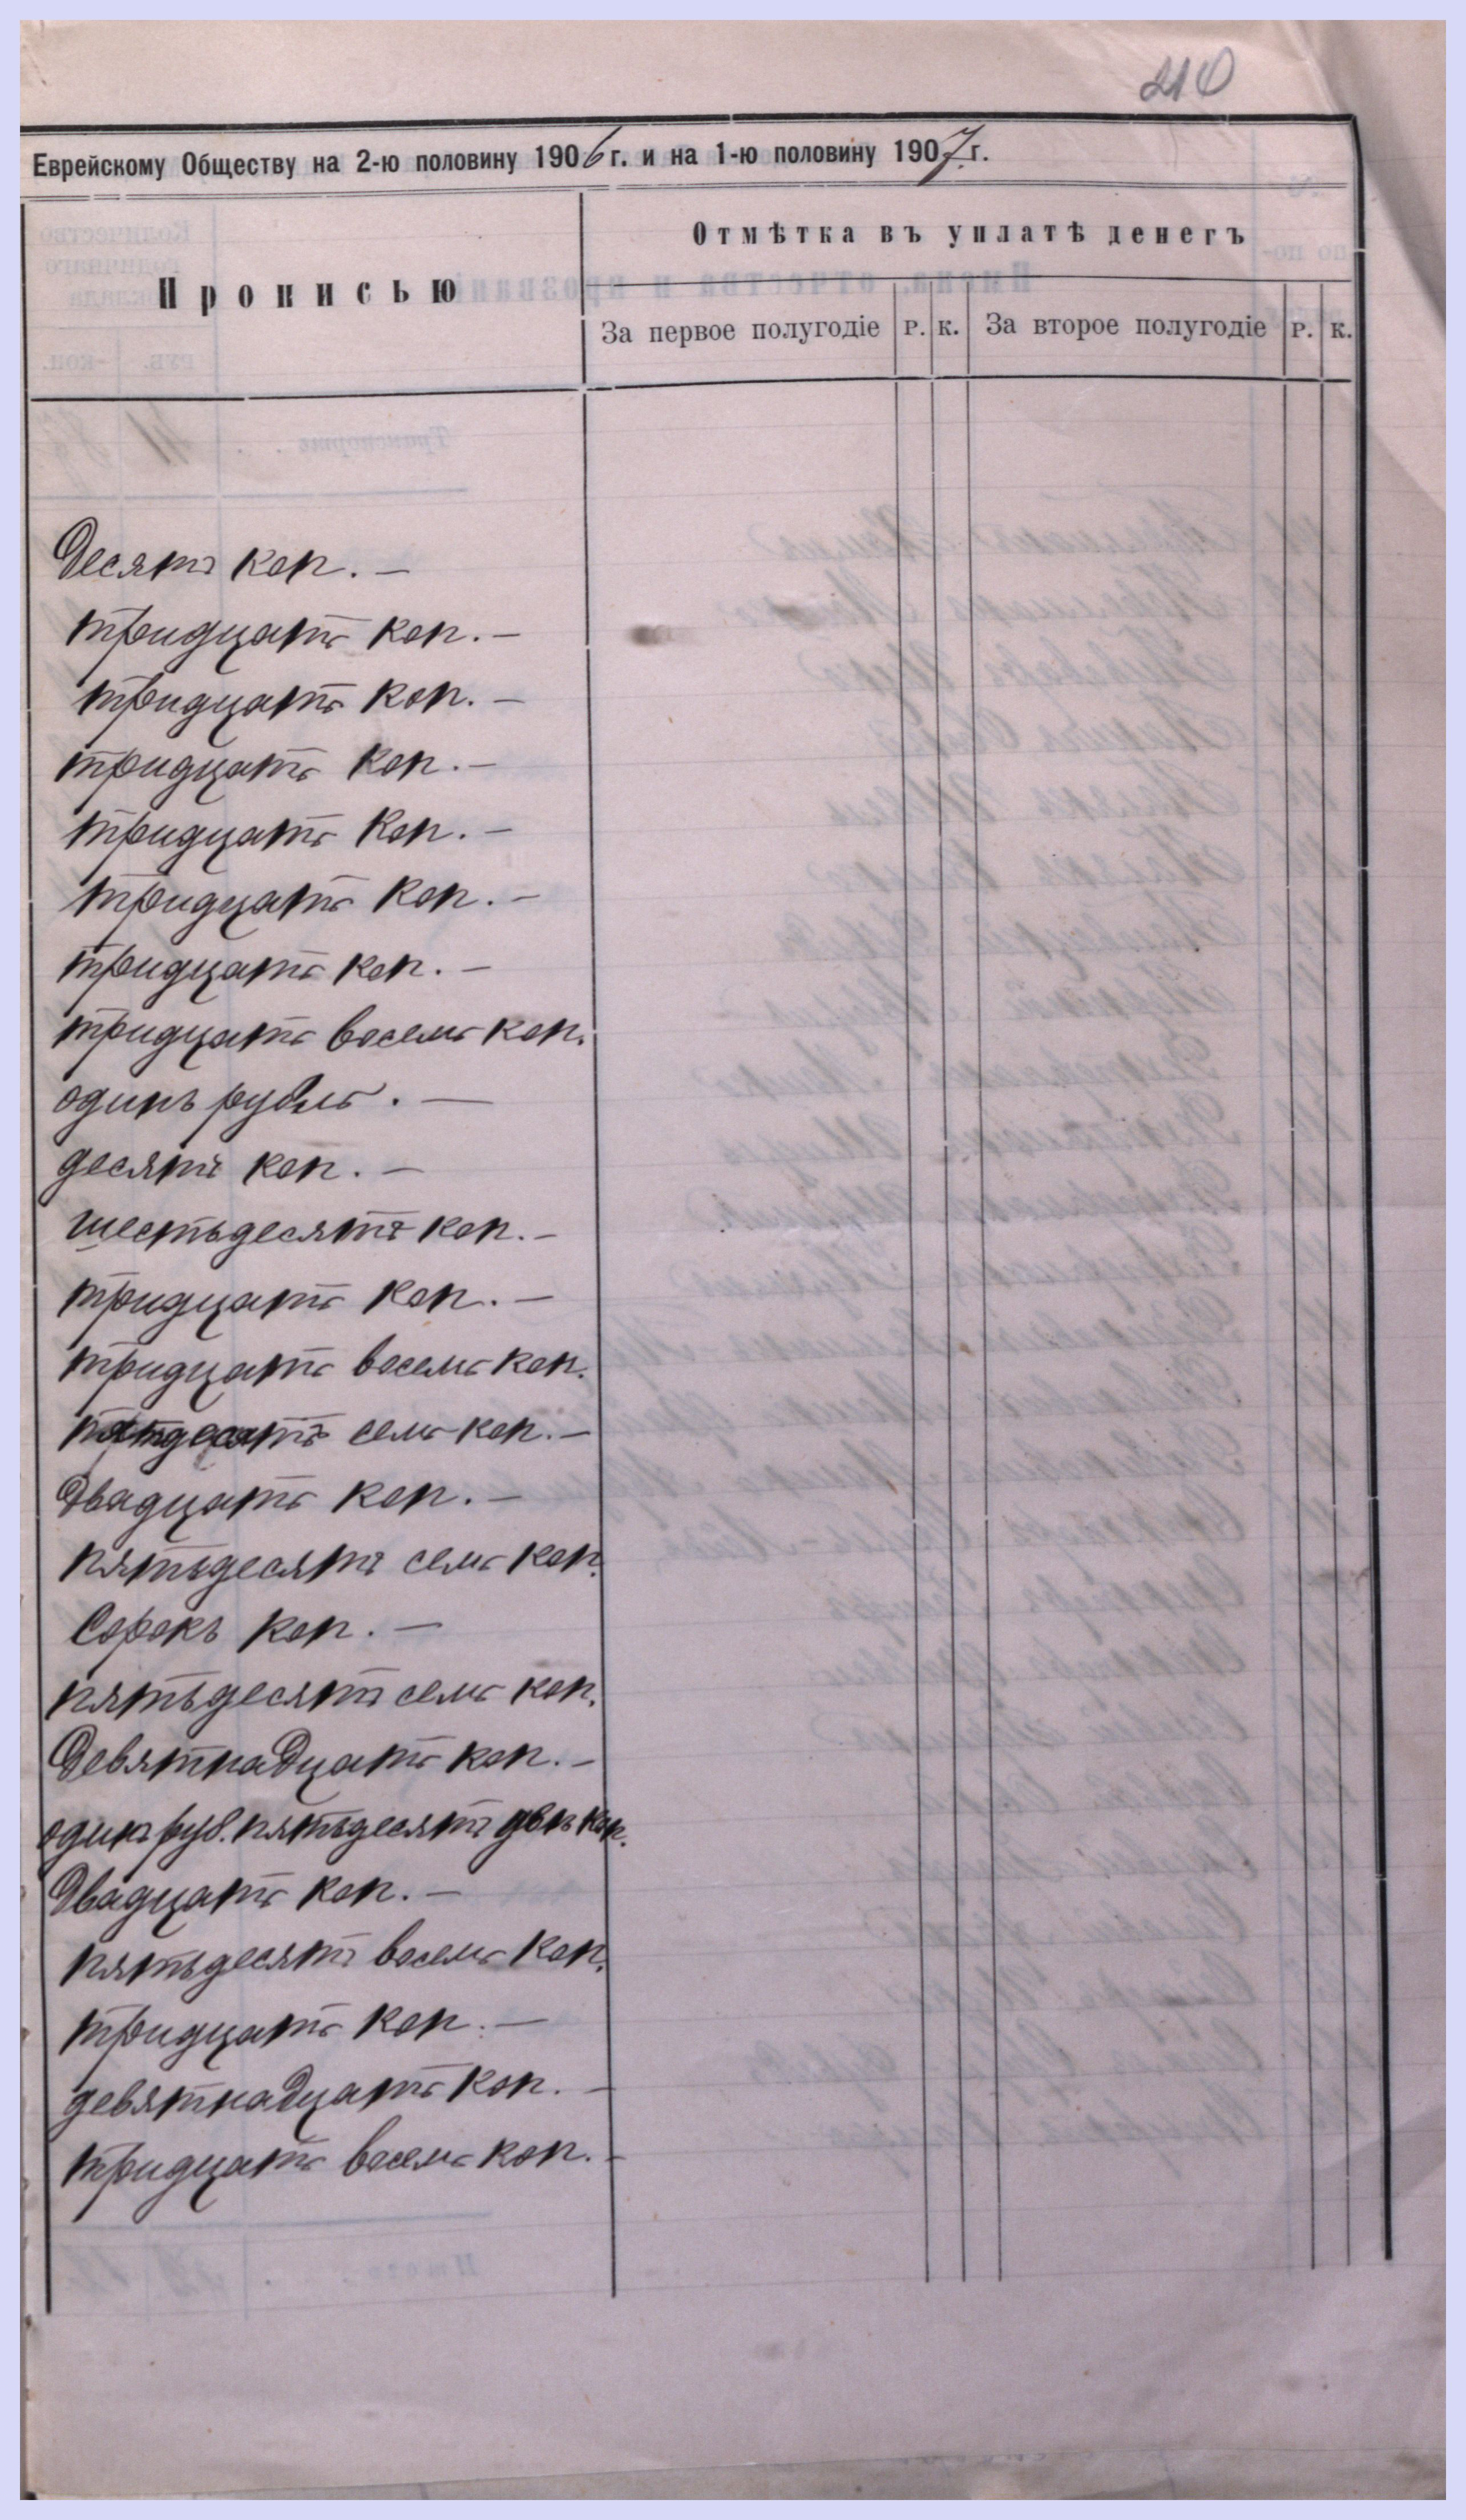 210
Еврейскому Обществу на 2-ю половину 1906 г. и на 1-ю половину 1907 г.
Прописью
Отмѣтка въ уплатѣ денегъ
За первое полугодіе Р. К. За второе полугодіе Р. К.
Десять коп. —
тридцать коп. —
тридцать коп. —
тридцать коп. —
тридцать коп. —
тридцать коп. —
тридцать коп. —
тридцать восемь коп.
одинъ рубль. —
десять коп. —
шестьдесятъ коп. —
тридцать коп. —
тридцать восемь коп.
пятдесятъ семь коп. —
Двадцать коп. —
пятьдесятъ семь коп.
Сорокъ коп. —
пятьдесятъ семь коп.
Девятнадцать коп. —
одинъ руб. пятьдесятъ двѣ коп.
Двадцать коп. —
пятьдесятъ восемь коп.
тридцать коп. —
девятнадцать коп. —
тридцать восемь коп. —